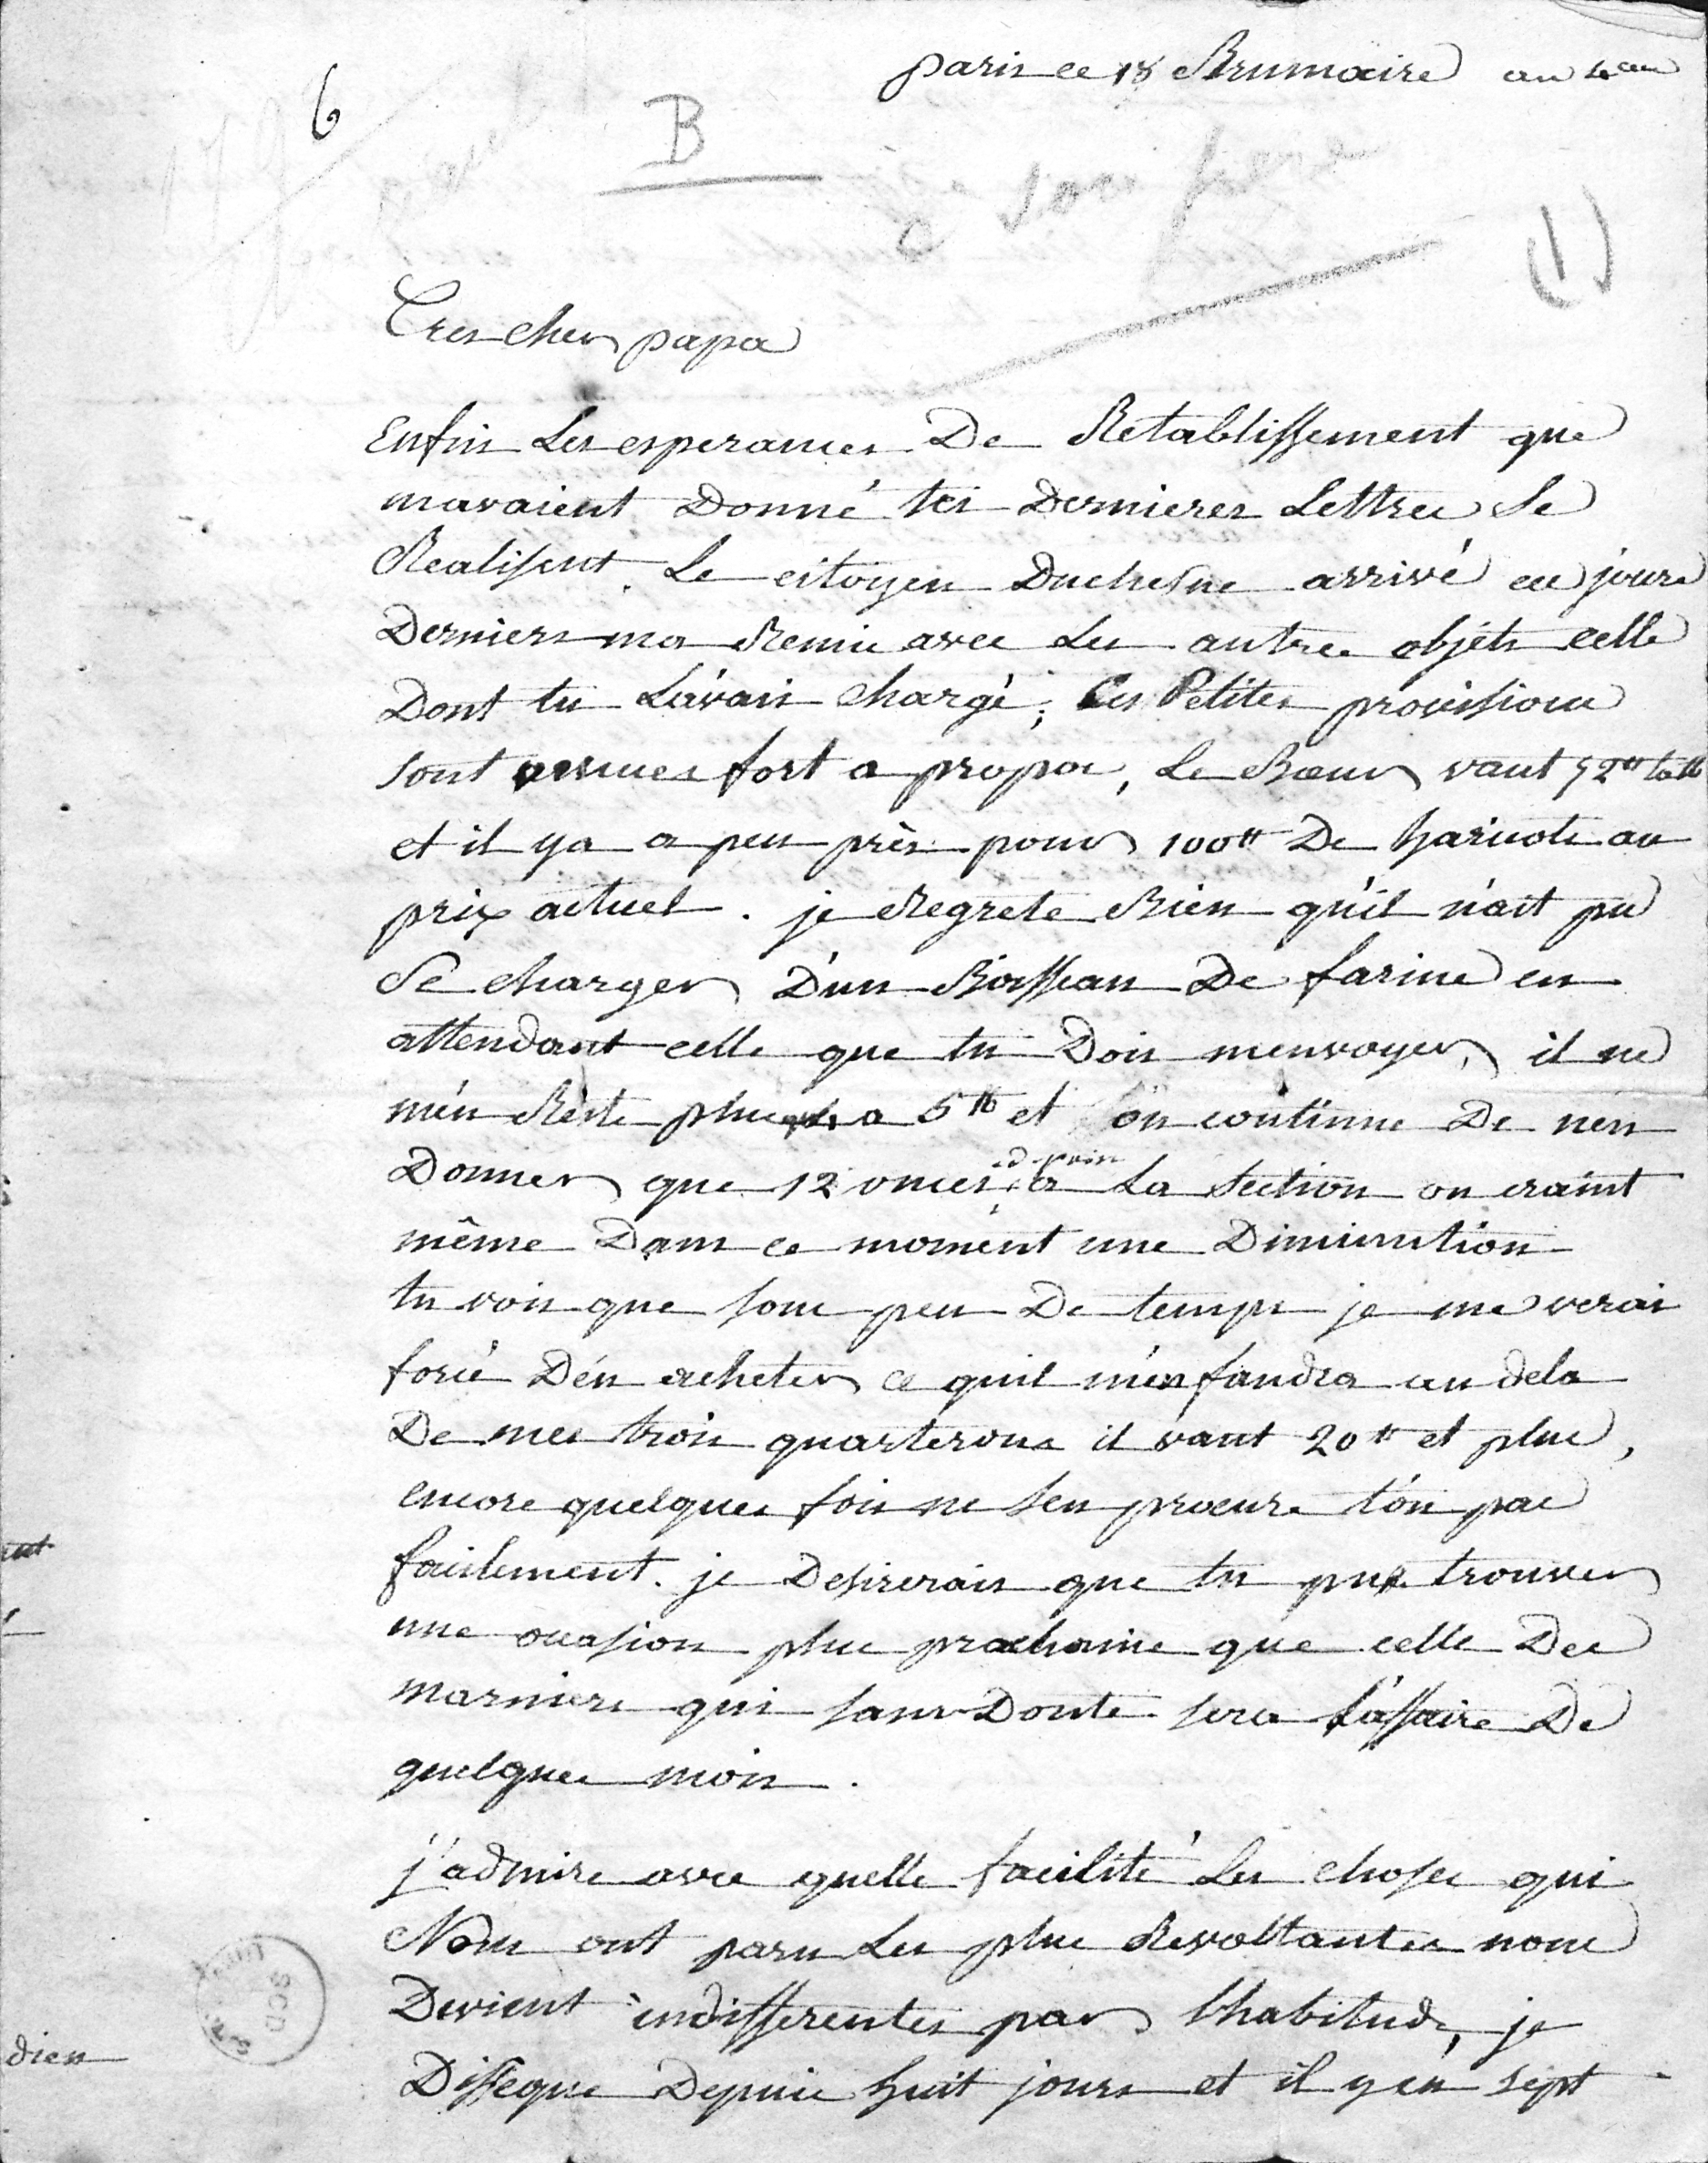 paris ce 18 Brumaire an 4eme
6
B
a son pere
(1)
Tres cher papa
Enfin Les esperances De Retablissement que
mavaient Donné tes Dernieres Lettres Se
Realisent. Le citoyen Duchesne arrivé ces jours
Derniers ma Remis avec Les autres objéts celle
Dont tu L'avais chargé; Ces Petites provisions
sont venues fort a propos, Le Bœur vaut 52tt la lb
et il ya a peu près pour 100tt De haricots au
prix actuel. je Regrete Bien qu'il n'ait pu
Se charger D'un Boisseau De farine en
attendant celle que tu Dois menvoyer, il ne
m'én Reste plus a 5 lb et l'on continue De nen
Donner que 12 onces de pain a La Section on craint
même Dans ce moment une Diminution
tu vois que sous peu De temps je me verai
forcé D'én acheter ce quil m'én faudra au dela
De mes trois quarterons il vaut 20tt et plus,
encore quelques fois ne sen procure t'on pas
facilement. je Desirerais que tu pus trouver
une occasion plus prochaine que celle Des
mariniers qui sans Doute sera l'affaire De
quelques mois.
j'admire avec quelle facilité Les choses qui
Nous ont paru Les plus Revoltantes nous
Devient indifferentes par l'habitude, je
Disseque Depuis huit jours et il y en sept
dien
SCD